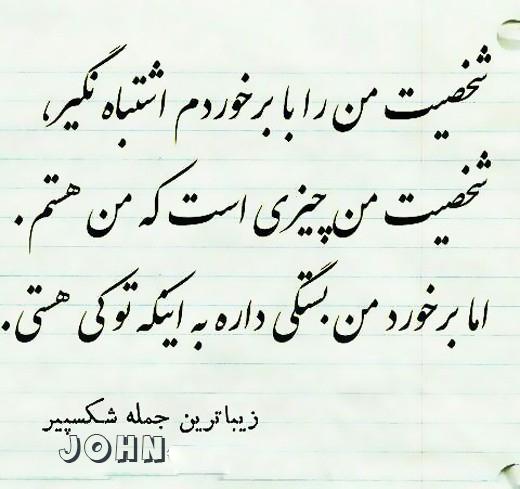 شخصیت من را با برخوردم اشتباه نگیر،
شخصیت من چیزی است که من هستم .
اما برخورد من بستگی داره به اینکه تو کی هستی .
زیباترین جمله شکسپیر
JOHN